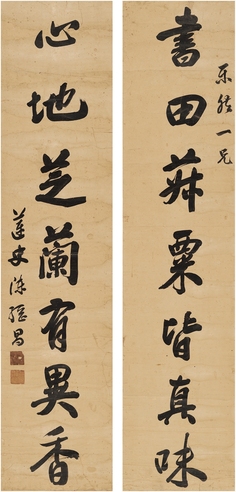 乐姓一兄
書田菽粟皆真味
心地芝蘭有異香
蓮史陈繼昌